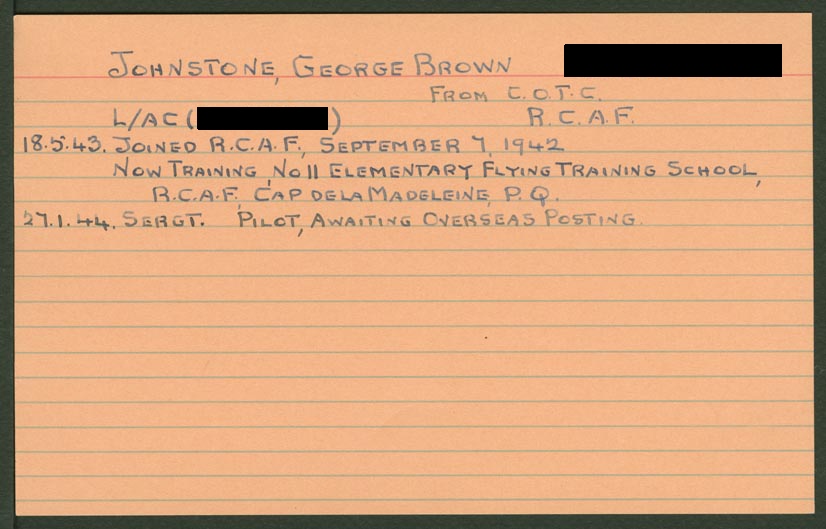 JOHNSTONE, GEORGE BROWN
FROM C.O.T.C.
L/AC ( ) R.C.A.F.
18.5.43. JOINED R.C.A.F., SEPTEMBER 7, 1942
NOW TRAINING, NO 11 ELEMENTARY FLYING TRAINING SCHOOL,
R.C.A.F., CAP DE LA MADELEINE, P.Q.
27.1.44. SERGT. PILOT, AWAITING OVERSEAS POSTING.